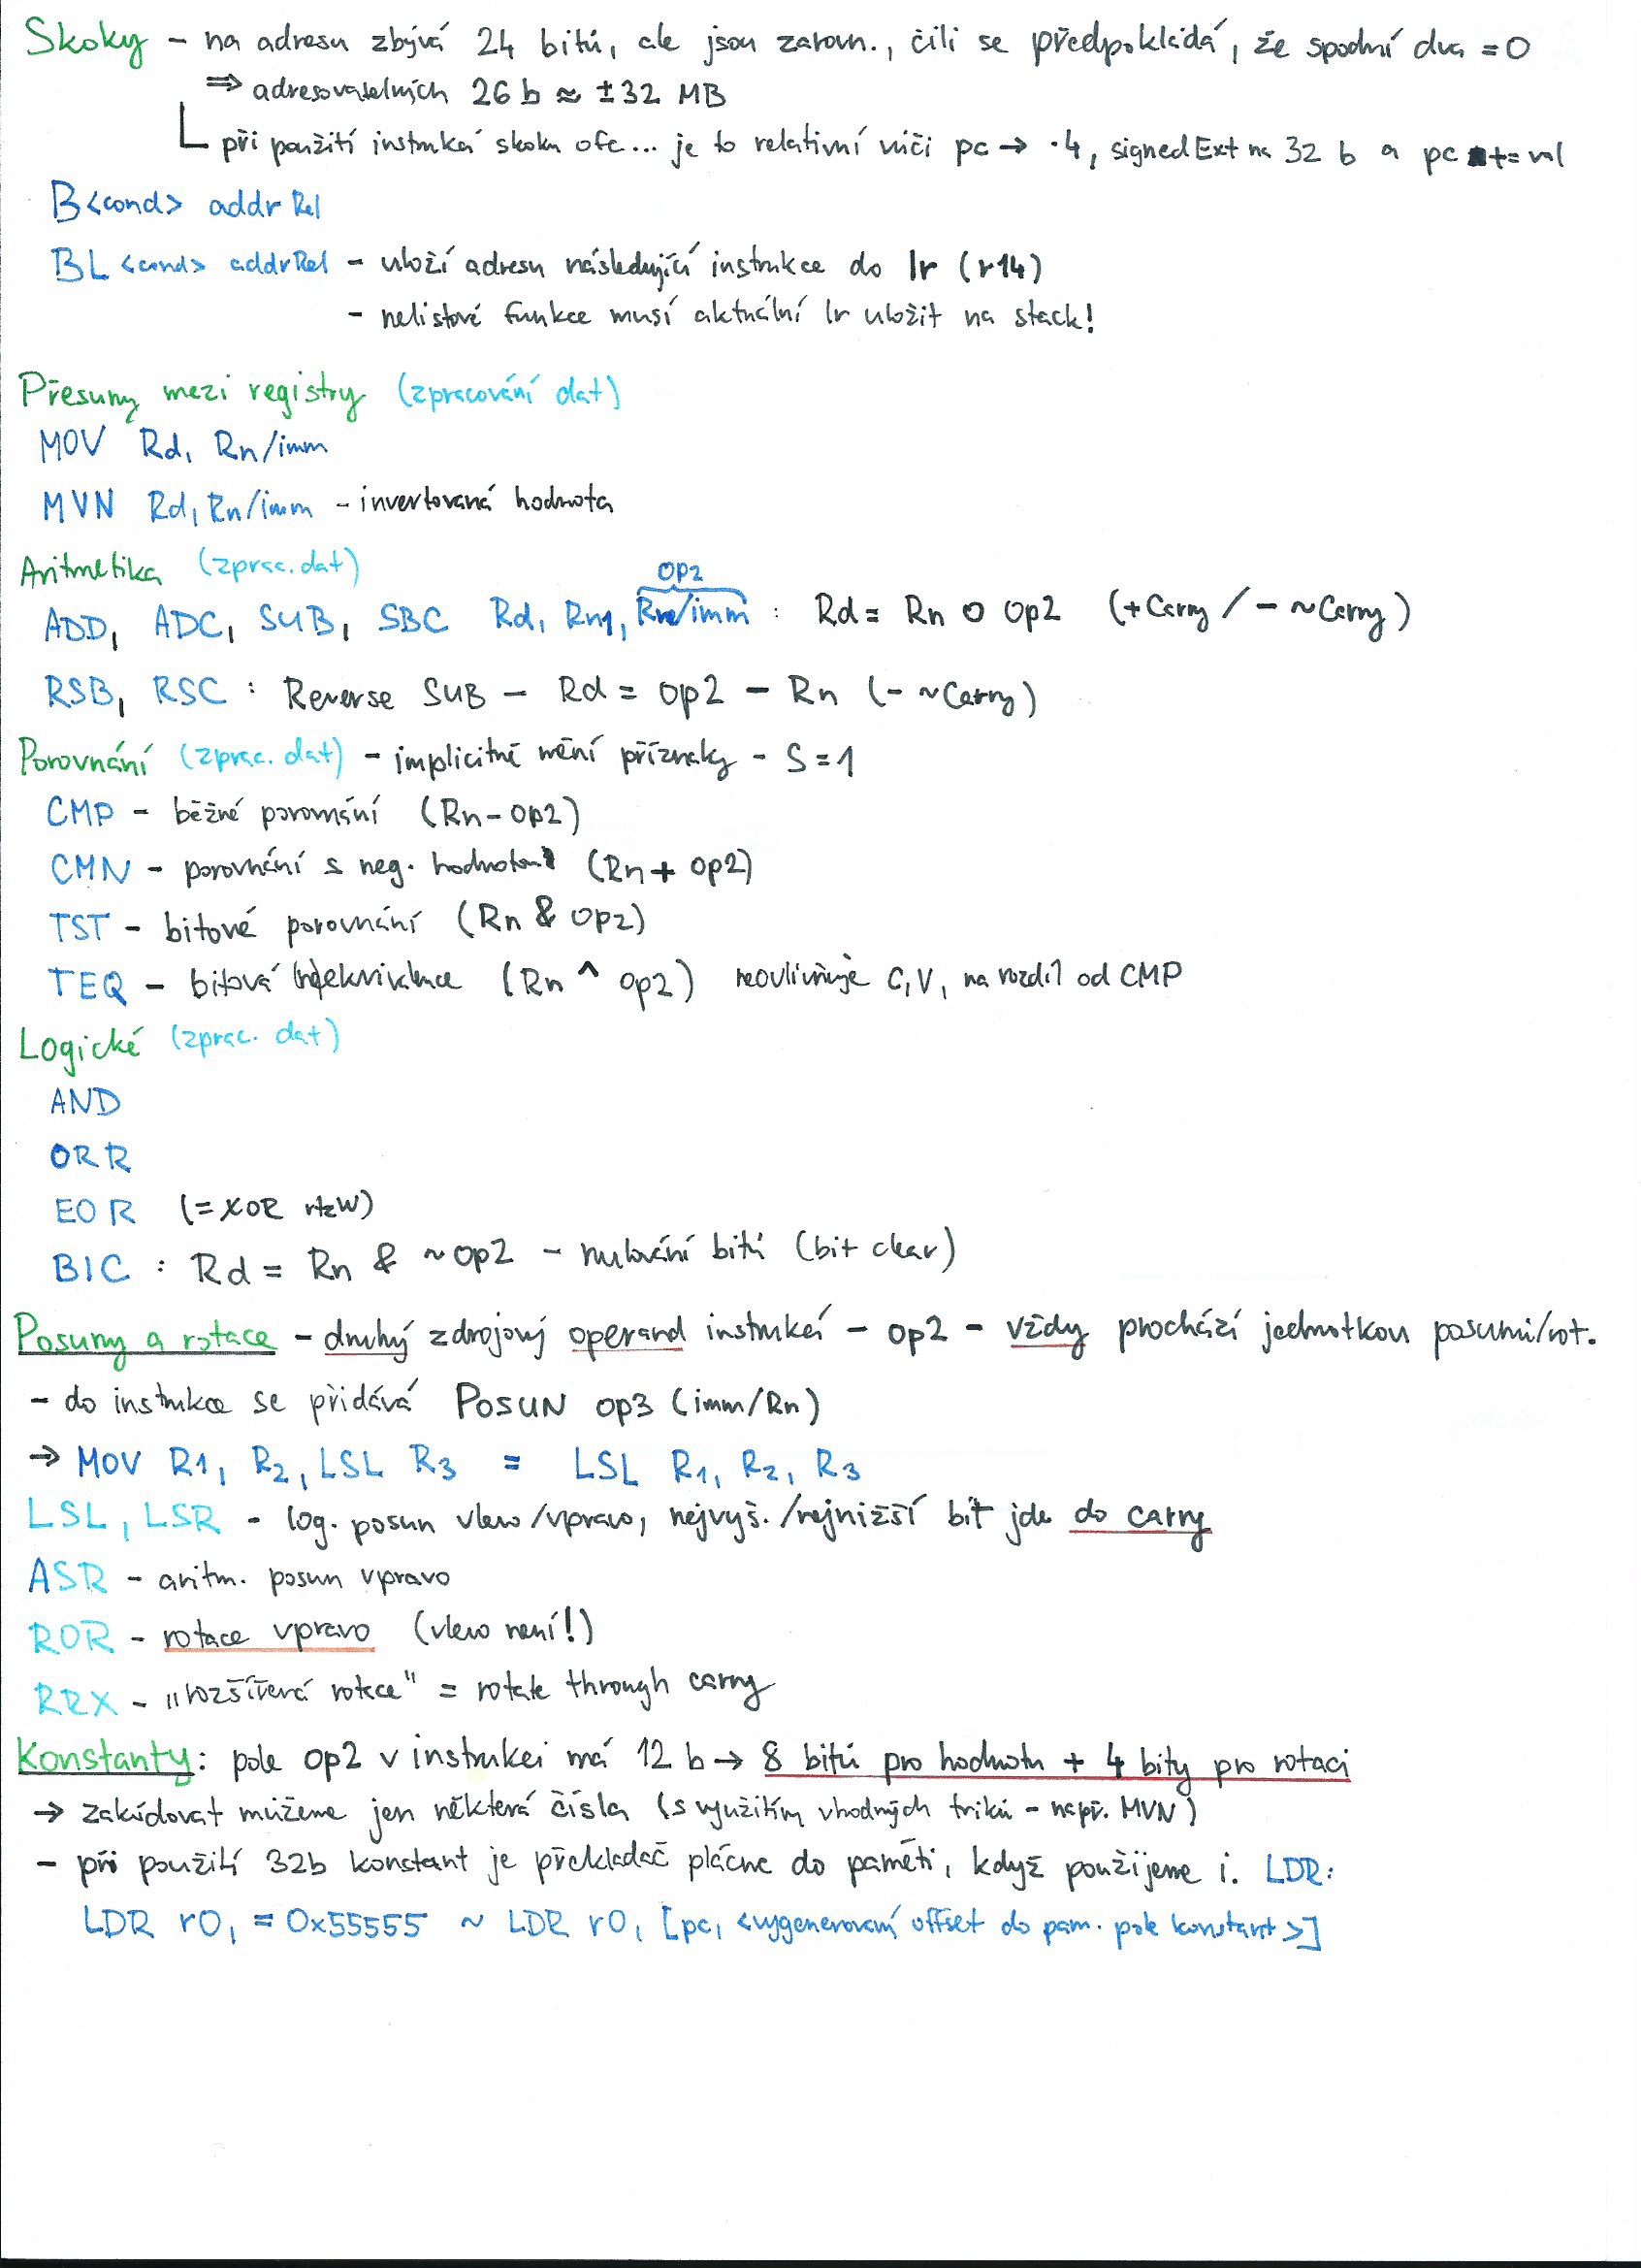 Skoky - na adresu zbývá 24 bitů, ale jsou zarovn., čili se předpokládá, že spodní dva = 0
⇒ adresovatelných 26 b ≈ ±32 MB
při použití instrukcí skoku ofc... je to relativní vůči pc → ·4, signedExt na 32 b a pc += val
B<cond> addrRel
BL<cond> addrRel - uloží adresu následující instrukce do lr (r14)
- nelistové funkce musí aktuální lr uložit na stack!
Přesuny mezi registry (zpracování dat)
MOV Rd, Rn/imm
MVN Rd, Rn/imm - invertovaná hodnota
Aritmetika (zprac. dat)
op2
ADD, ADC, SUB, SBC Rd, Rn, Rm/imm : Rd = Rn o op2 (+Carry / - ~Carry)
RSB, RSC : Reverse SUB - Rd = op2 - Rn (- ~Carry)
Porovnání (zprac. dat) - implicitně mění příznaky - S=1
CMP - běžné porovnání (Rn - op2)
CMN - porovnání s neg. hodnotou (Rn + op2)
TST - bitové porovnání (Rn & op2)
TEQ - bitová (ne)ekvivalence (Rn ^ op2) neovlivňuje C,V, na rozdíl od CMP
Logické (zprac. dat)
AND
ORR
EOR (=XOR)
BIC : Rd = Rn & ~op2 - nulování bitů (bit clear)
Posuny a rotace - druhý zdrojový operand instrukcí - op2 - vždy prochází jednotkou posunů/rot.
- do instrukce se přidává POSUN op3 (imm/Rn)
→ MOV R1, R2, LSL R3 = LSL R1, R2, R3
LSL, LSR - log. posun vlevo/vpravo, nejvyš./nejnižší bit jde do carry
ASR - aritm. posun vpravo
ROR - rotace vpravo (vlevo není!)
RRX - „rozšířená rotace" = rotate through carry
Konstanty: pole op2 v instrukci má 12 b → 8 bitů pro hodnotu + 4 bity pro rotaci
→ zakódovat můžeme jen některá čísla (s využitím vhodných triků - např. MVN)
- při použití 32b konstant je překladač plácne do paměti, když použijeme i. LDR:
LDR r0, = 0x55555 ~ LDR r0, [pc, <vygenerovaný offset do pam. pole konstant>]